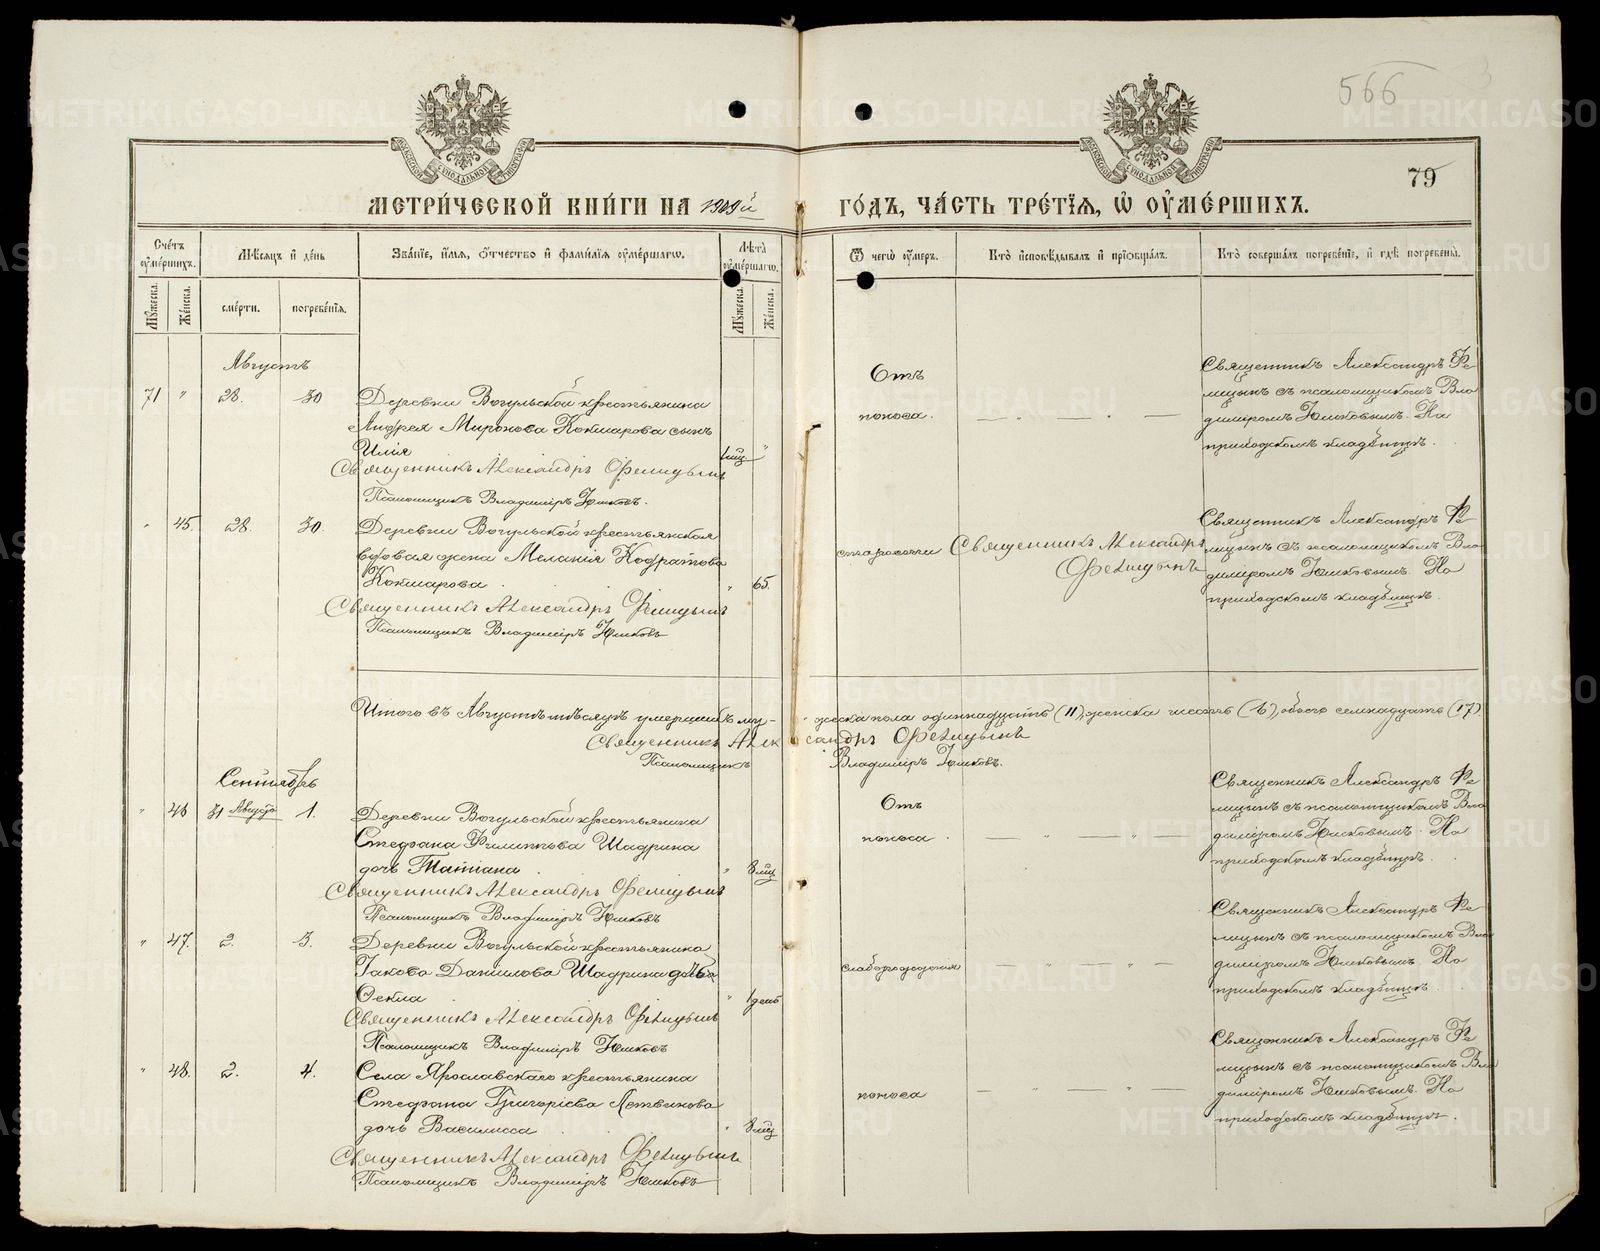 566
79
МЕТРИ́ЧЕСКОЙ КНИ́ГИ НА 1909й ГО́ДЪ, ЧА́СТЬ ТРЕ́ТІѦ, Ѡ ОУМЕ́РШИХЪ.
Сче́тъ оуме́ршихъ.
Мѣ́сяцъ и де́нь
Зва́ніе, и́мѧ, ѻ́тчество и фами́лїѧ оуме́ршагѡ.
Лѣ́та оуме́ршагѡ.
Ѿ чегѡ̀ оу́меръ.
Кто̀ и҆сповѣ́дывалъ и҆ прїѡбща́лъ.
Кто̀ соверша́лъ погребе́нїе, и҆ гдѣ̀ погребены̀.
Мꙋ́жеска.
Же́нска.
сме́рти.
погребе́нїѧ.
Мꙋ́жеска.
Же́нска.
Августъ
71 " 28. 30 Деревни Вогульской крестьянина
Андрея Миронова Кокшарова сынъ
Илія 1 мц. "
Священникъ Александръ Фелицынъ
Псаломщикъ Владиміръ Юшковъ.
Отъ
поноса. — " — " —
Священникъ Александръ Фе-
лицынъ съ псаломщикомъ Вла
диміромъ Юшковымъ. На
приходскомъ кладбищѣ.
" 45. 28. 30. Деревни Вогульской крестьянская
вдовая жена Меланія Кодратова
Кокшарова. " 65.
Священникъ Александръ Фелицынъ
Псаломщикъ Владиміръ Юшковъ
старости
Священникъ Александръ
Фелицынъ
Священникъ Александръ Фе-
лицынъ съ псаломщикомъ Вла-
диміромъ Юшковымъ. На
приходскомъ кладбищѣ.
Итого въ Августѣ мѣсяцѣ умершихъ му-жеска пола одиннадцать (11), женска шесть (6), обоего семнадцать (17)
Священникъ Александръ Фелицынъ
Псаломщикъ Владиміръ Юшковъ.
Сентябрь
" 46 31 Августа 1. Деревни Вогульской крестьянина
Стефана Филиппова Шадрина
дочь Татіана. " 8 мц
Священникъ Александръ Фелицынъ
Псаломщикъ Владиміръ Юшковъ
Отъ
поноса. — " — " —
Священникъ Александръ Фе
лицынъ съ псаломщикомъ Вла
диміромъ Юшковымъ. На
приходскомъ кладбищѣ.
" 47. 2. 3. Деревни Вогульской крестьянина
Іакова Данилова Шадрина дочь
Ѳекла " 1 день
Священникъ Александръ Фелицынъ
Псаломщикъ Владиміръ Юшковъ
слаборожденія — " — " —
Священникъ Александръ Фе-
лицынъ съ псаломщикомъ Вла
диміромъ Юшковымъ. На
приходскомъ кладбищѣ.
" 48. 2. 4. Села Ярославскаго крестьянина
Стефана Григоріева Летвинова
дочь Василисса. " 8 мц
Священникъ Александръ Фелицынъ
Псаломщикъ Владиміръ Юшковъ
поноса — " — " —
Священникъ Александръ Фе
лицынъ съ псаломщикомъ Вла
диміромъ Юшковымъ. На
приходскомъ кладбищѣ.
METRIKI.GASO-URAL.RU